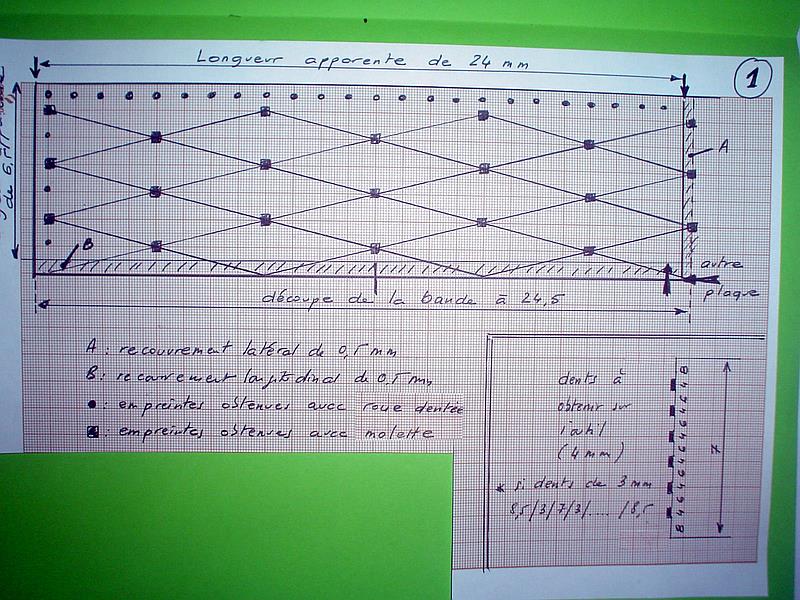 Longueur apparente de 24 mm
1
de 6,5
A
B
autre
plaque
découpe de la bande à 24,5
A : recouvrement latéral de 0,5 mm
B : recouvrement longitudinal de 0,5 mm
: empreintes obtenues avec roue dentée
: empreintes obtenues avec molette
dents à
obtenir sur
l'outil
(4 mm)
* si dents de 3 mm
8,5/3/7/3/..... /8,5
8 4 6 4 6 4 6 4 6 4 6 4 8
7